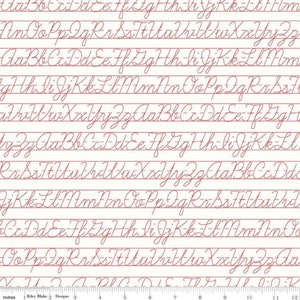 Aa Bb Cc Dd Ee Ff Gg Hh Ii Jj Kk Ll
Nn Oo Pp Qq Rr Ss Tt Uu Vv Ww Xx Yy
Zz Aa Bb Cc Dd Ee Ff Gg Hh Ii Jj Kk
Gg Hh Ii Jj Kk Ll Mm Nn Oo Pp Qq Rr
Tt Uu Vv Ww Xx Yy Zz Aa Bb Cc Dd Ee Ff
Zz Aa Bb Cc Dd Ee Ff Gg Hh Ii Jj
Rr Ss Tt Uu Vv Ww Xx Yy Zz Aa Bb
Kk Ll Mm Nn Oo Pp Qq Rr Ss Tt
Cc Dd Ee Ff Gg Hh Ii Jj Kk Ll
Pp Qq Rr Ss Tt Uu Vv Ww Xx Yy Zz
Inches 1 Riley Blake 2 Designs 3 4 5 6 7 8 9 10 11 12